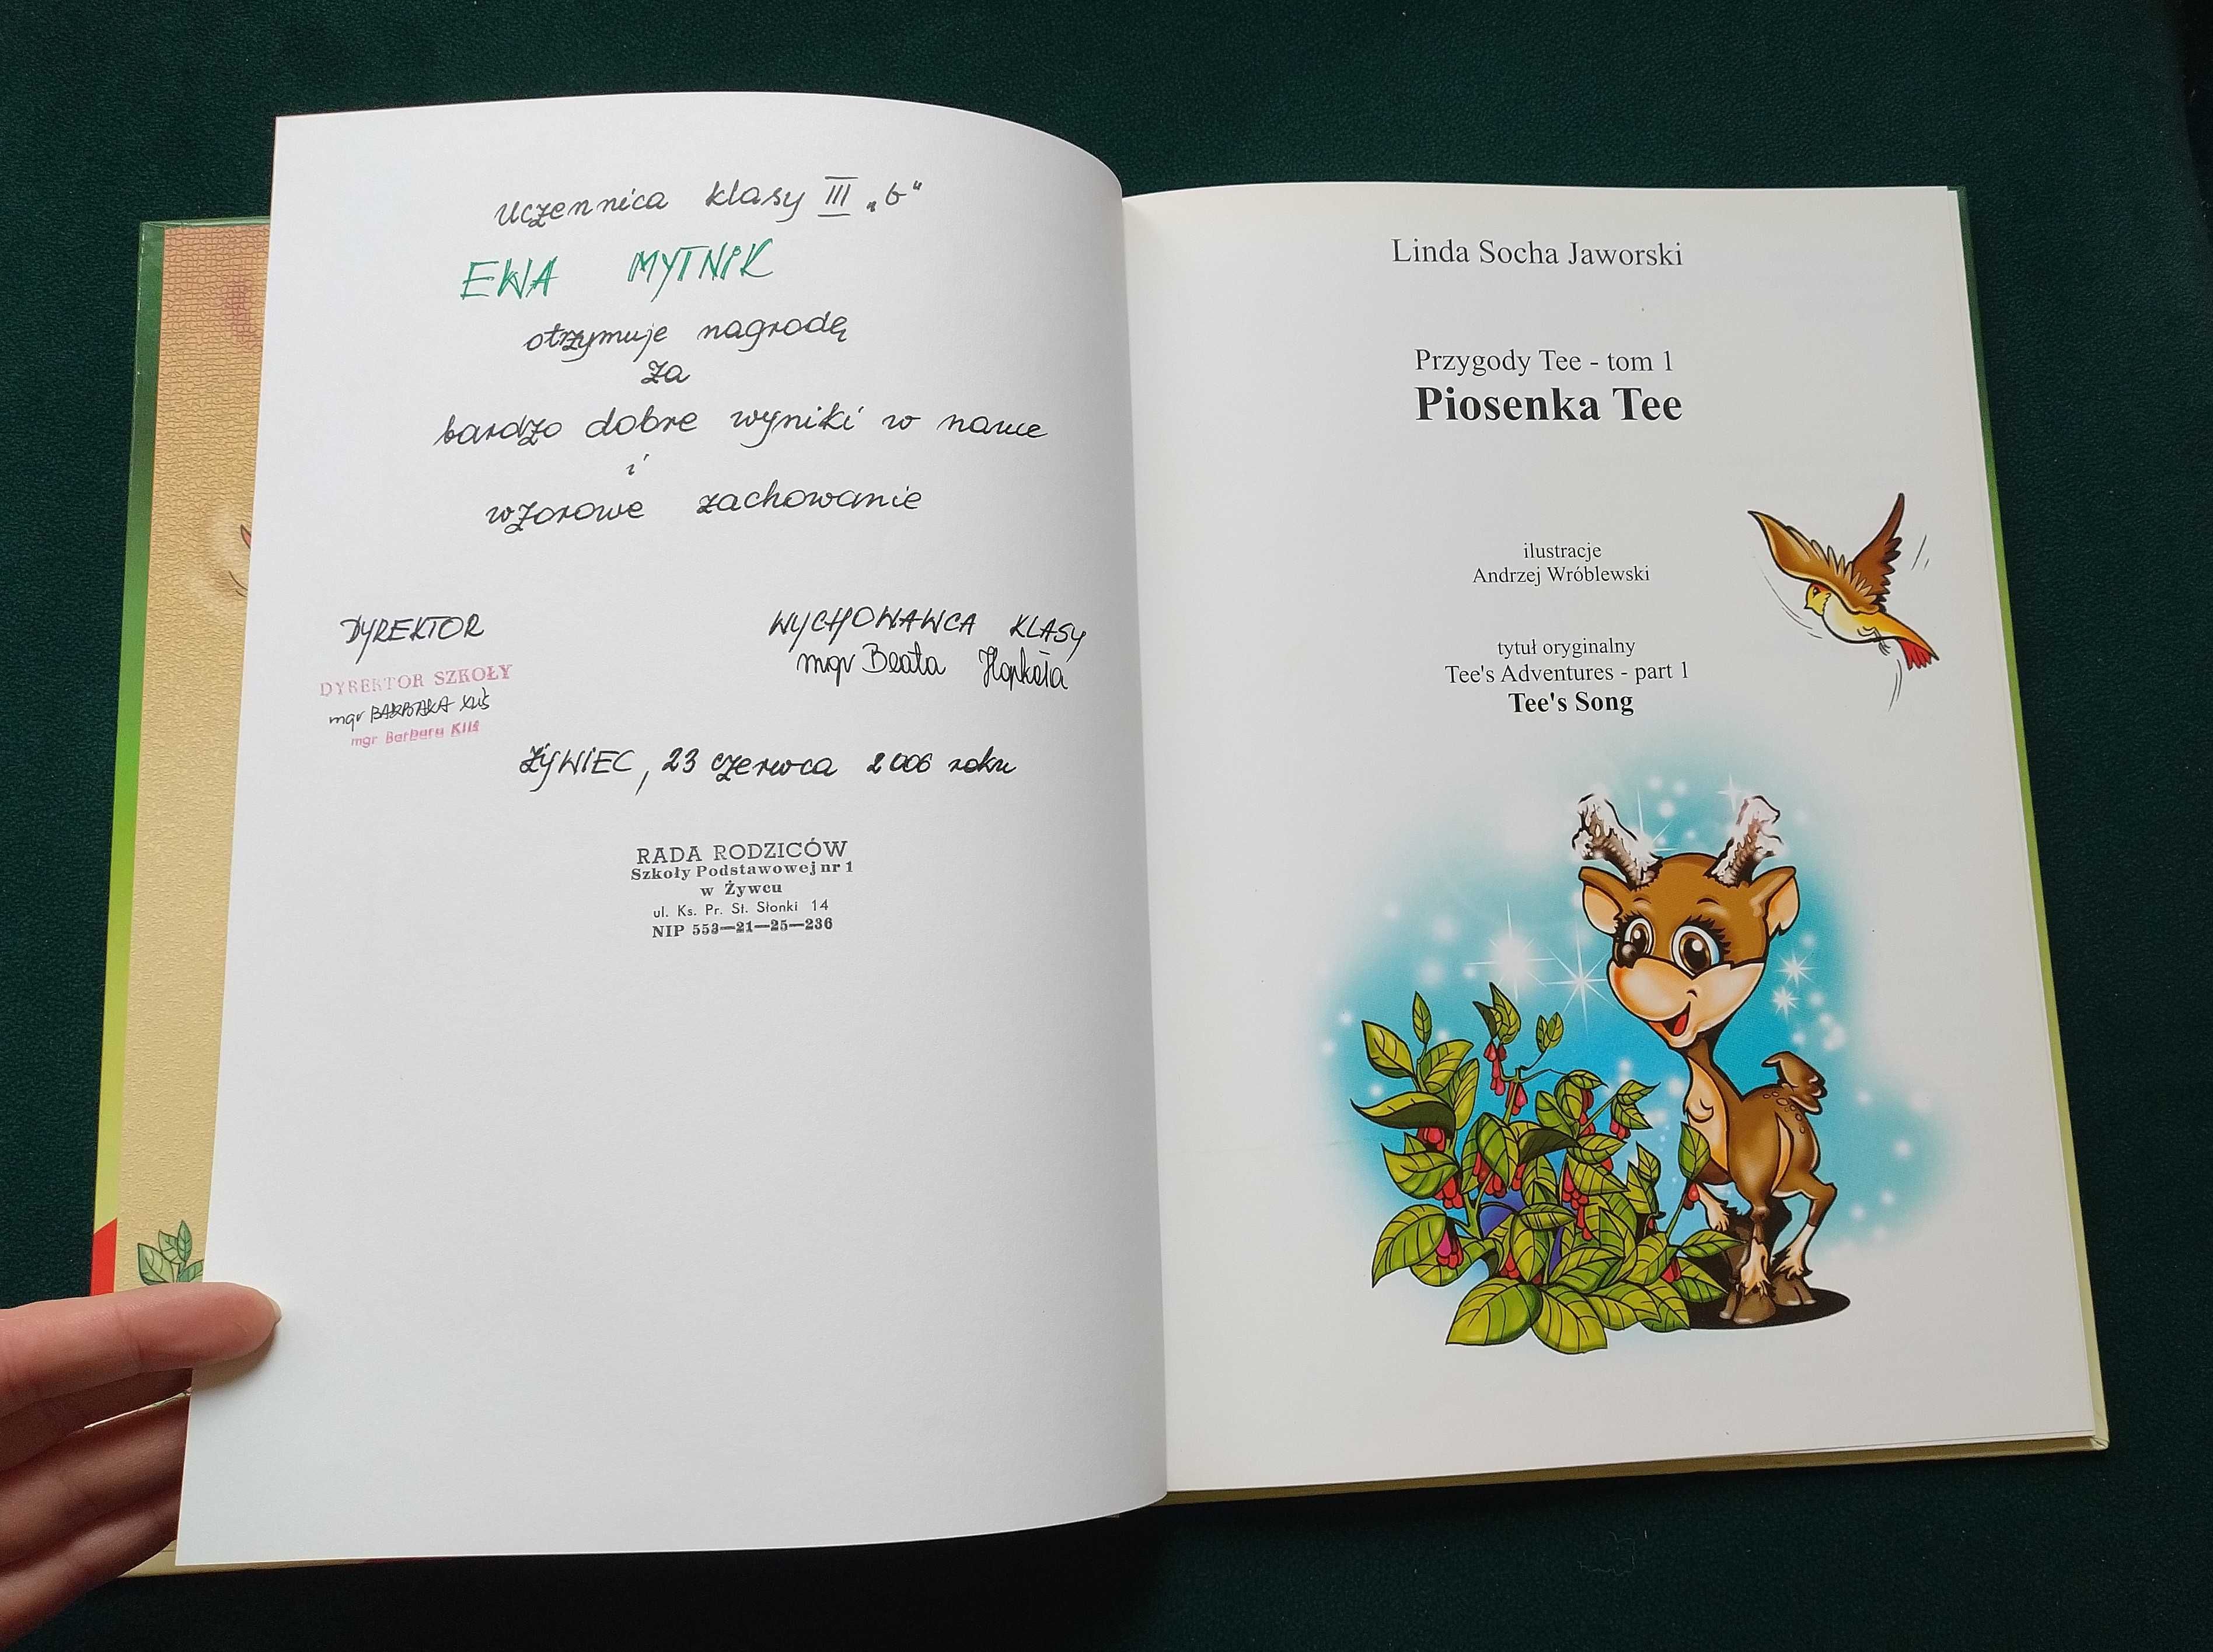 uczennica klasy III „b"
EWA MYTNIK
otrzymuje nagrodę
za
bardzo dobre wyniki w nauce
i
wzorowe zachowanie
DYREKTOR
DYREKTOR SZKOŁY
mgr BARBARA
mgr Barbara
WYCHOWAWCA KLASY
mgr Beata
ŻYWIEC, 23 czerwca 2006 roku
RADA RODZICÓW
Szkoły Podstawowej nr 1
w Żywcu
ul. Ks. Pr. St. Słonki 14
NIP 553—21—25—236
Linda Socha Jaworski
Przygody Tee - tom 1
Piosenka Tee
ilustracje
Andrzej Wróblewski
tytuł oryginalny
Tee's Adventures - part 1
Tee's Song